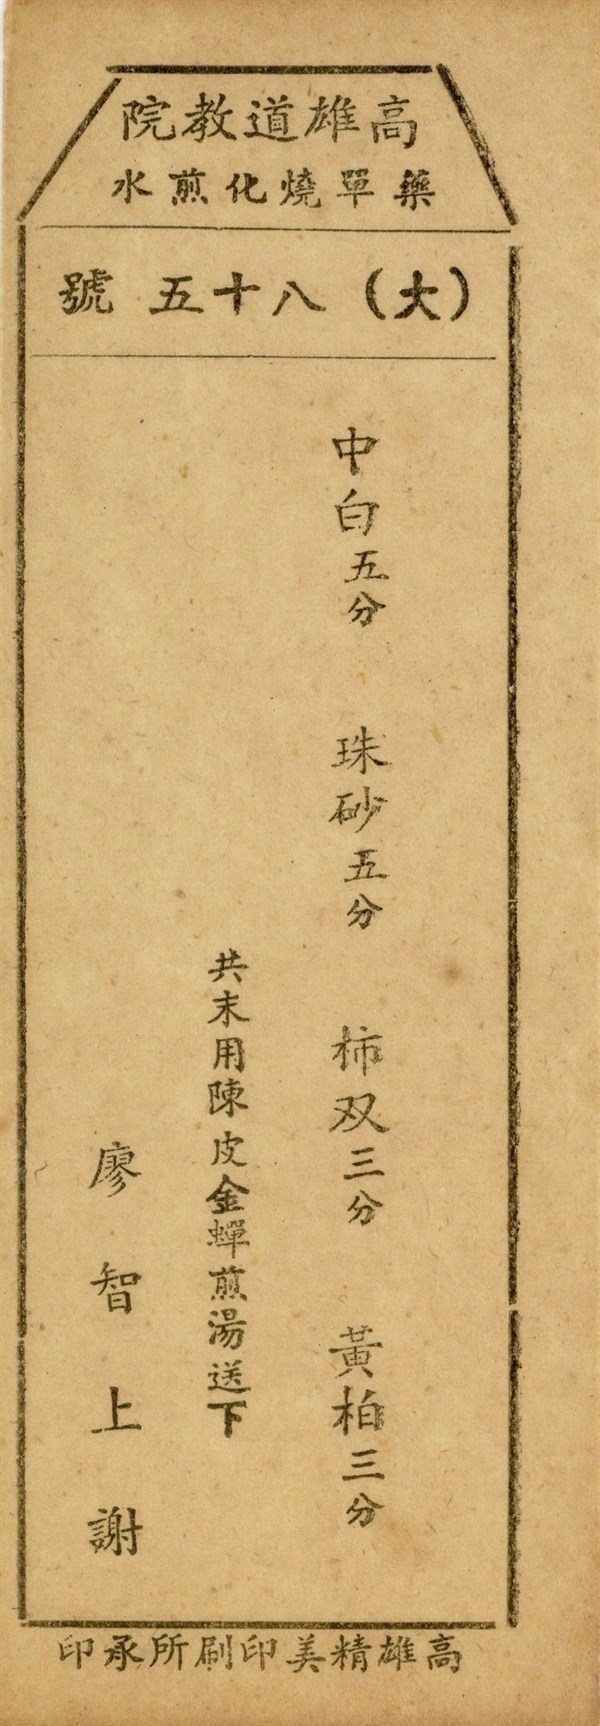 高雄道教院
藥單燒化煎水
（大）八十五號
中白五分　珠砂五分　柿双三分　黃柏三分
共末用陳皮金蟬煎湯送下
廖智上謝
高雄精美印刷所承印